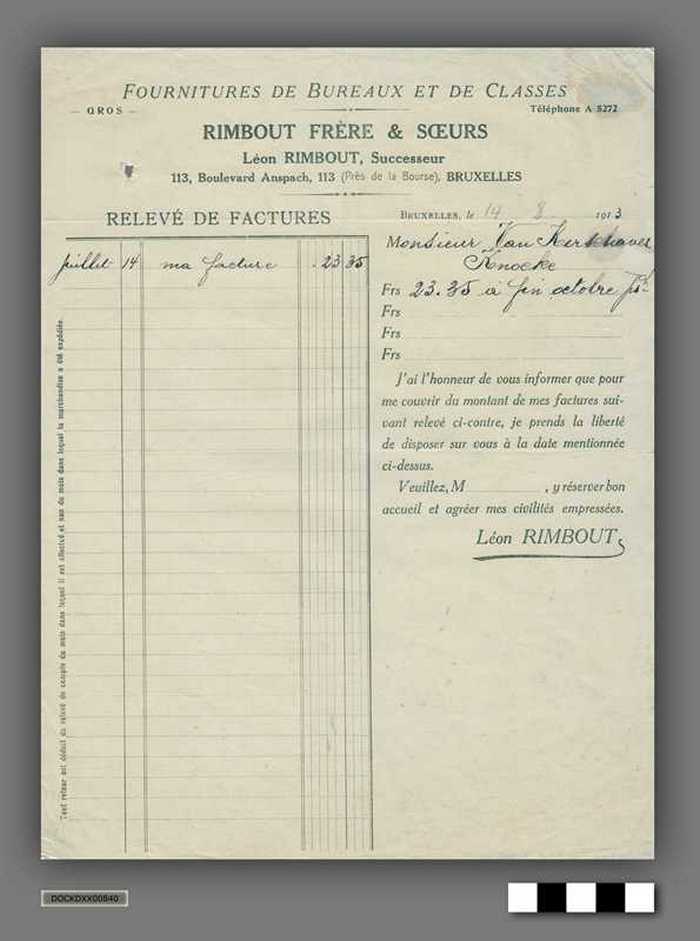 FOURNITURES DE BUREAUX ET DE CLASSES
— GROS —
Téléphone A 5272
RIMBOUT FRÈRE & SŒURS
Léon RIMBOUT, Successeur
113, Boulevard Anspach, 113 (Près de la Bourse), BRUXELLES
RELEVÉ DE FACTURES
BRUXELLES, le 14 8 1913
Monsieur Van Kerschaver
Knocke
juillet 14 ma facture . 23.35
Frs 23.35 à fin octobre
Frs
Frs
Frs
J'ai l'honneur de vous informer que pour
me couvrir du montant de mes factures sui-
vant relevé ci-contre, je prends la liberté
de disposer sur vous à la date mentionnée
ci-dessus.
Veuillez, M , y réserver bon
accueil et agréer mes civilités empressées.
Léon RIMBOUT
Tout retour est déduit du relevé de compte du mois dans lequel il est effectué et non du mois dans lequel la marchandise a été expédiée.
DOCKDXX00840